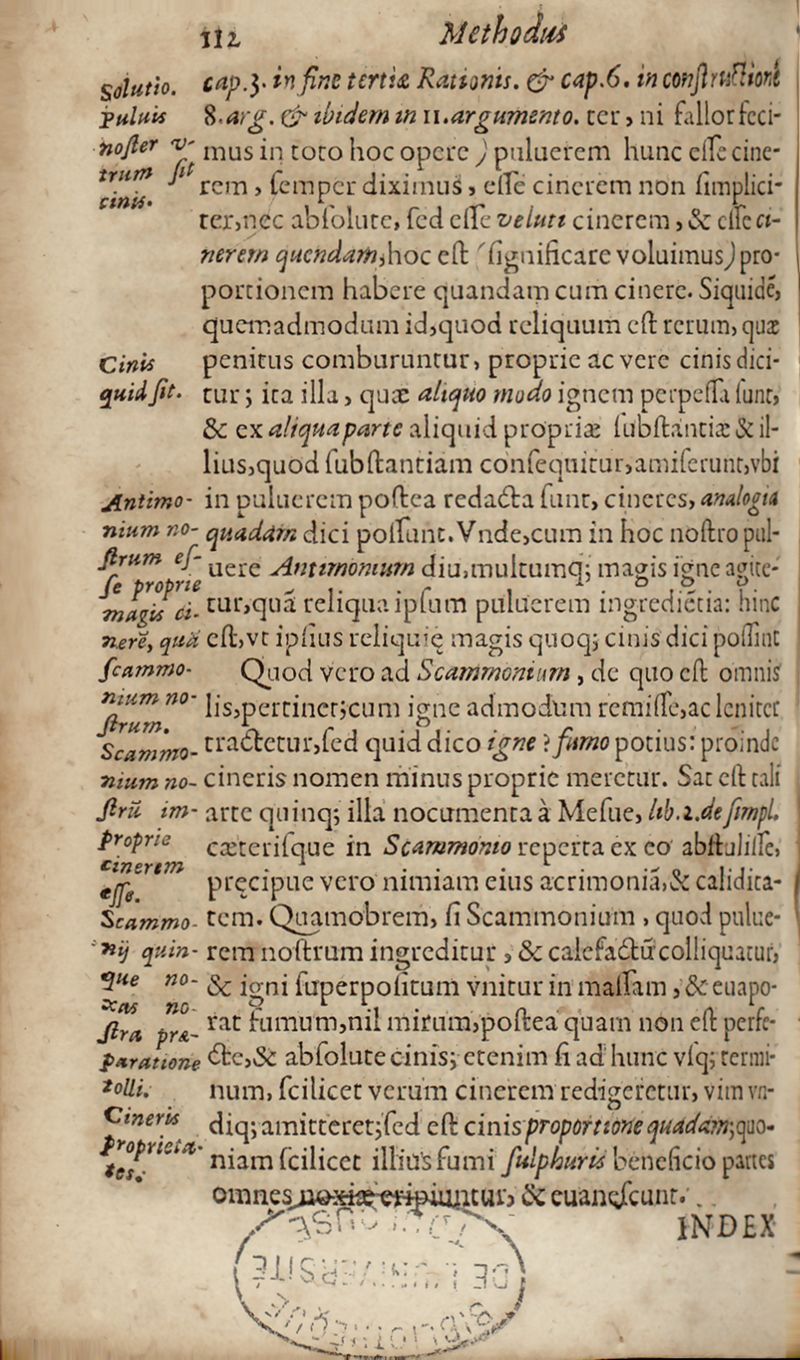 112 Methodus
Solutio.
Puluis
noster v-
trum sit
cinis.
cap.3. in fine tertiæ Rationis. & cap.6. in constructione
8.arg. & ibidem in 11.argumento. ter, ni fallor feci-
mus in toto hoc opere ) puluerem hunc esse cine-
rem, semper diximus, esse cinerem non simplici-
ter,nec absolute, sed esse veluti cinerem, & esse ci-
nerem quendam,hoc est (significare voluimus) pro-
portionem habere quandam cum cinere. Siquidē,
quemadmodum id,quod reliquum est rerum, quæ
Cinis
quid sit.
penitus comburuntur, proprie ac vere cinis dici-
tur; ita illa, quæ aliquo modo ignem perpessa sunt,
& ex aliqua parte aliquid propriæ substantiæ & il-
lius,quod substantiam consequitur,amiserunt,vbi
Antimo-
nium no-
strum es-
se proprie
magis ci-
nerē, quā
scammo-
nium no-
strum.
in puluerem postea redacta sunt, cineres, analogia
quadam dici possunt. Vnde,cum in hoc nostro pul-
uere Antimonium diu,multumq; magis igne agite-
tur,quā reliqua ipsum puluerem ingrediētia: hinc
est,vt ipsius reliquię magis quoq; cinis dici possint
Quod vero ad Scammonium, de quo est omnis
lis,pertinet;cum igne admodum remisse,ac leniter
Scammo-
nium no-
strū im-
proprie
cinerem
esse.
tractetur,sed quid dico igne ? fumo potius: proinde
cineris nomen minus proprie meretur. Sat est tali
arte quinq; illa nocumenta à Mesue, lib.2.de simpl.
cæterisque in Scammonio reperta ex eo abstulisse,
pręcipue vero nimiam eius acrimoniā,& calidita-
Scammo-
nij quin-
que no-
xas no-
stra præ-
paratione
tolli.
tem. Quamobrem, si Scammonium, quod pulue-
rem nostrum ingreditur, & calefactū colliquatur,
& igni superpositum vnitur in massam, & euapo-
rat fumum,nil mirum,postea quam non est perfe-
cte,& absolute cinis; etenim si ad hunc vsq; termi-
num, scilicet verum cinerem redigeretur, vim vn-
Cineris
proprieta-
tes.
diq; amitteret;sed est cinis proportione quadam;quo-
niam scilicet illius fumi sulphuris beneficio partes
omnes noxiæ eripiuntur, & euanescunt.
INDEX